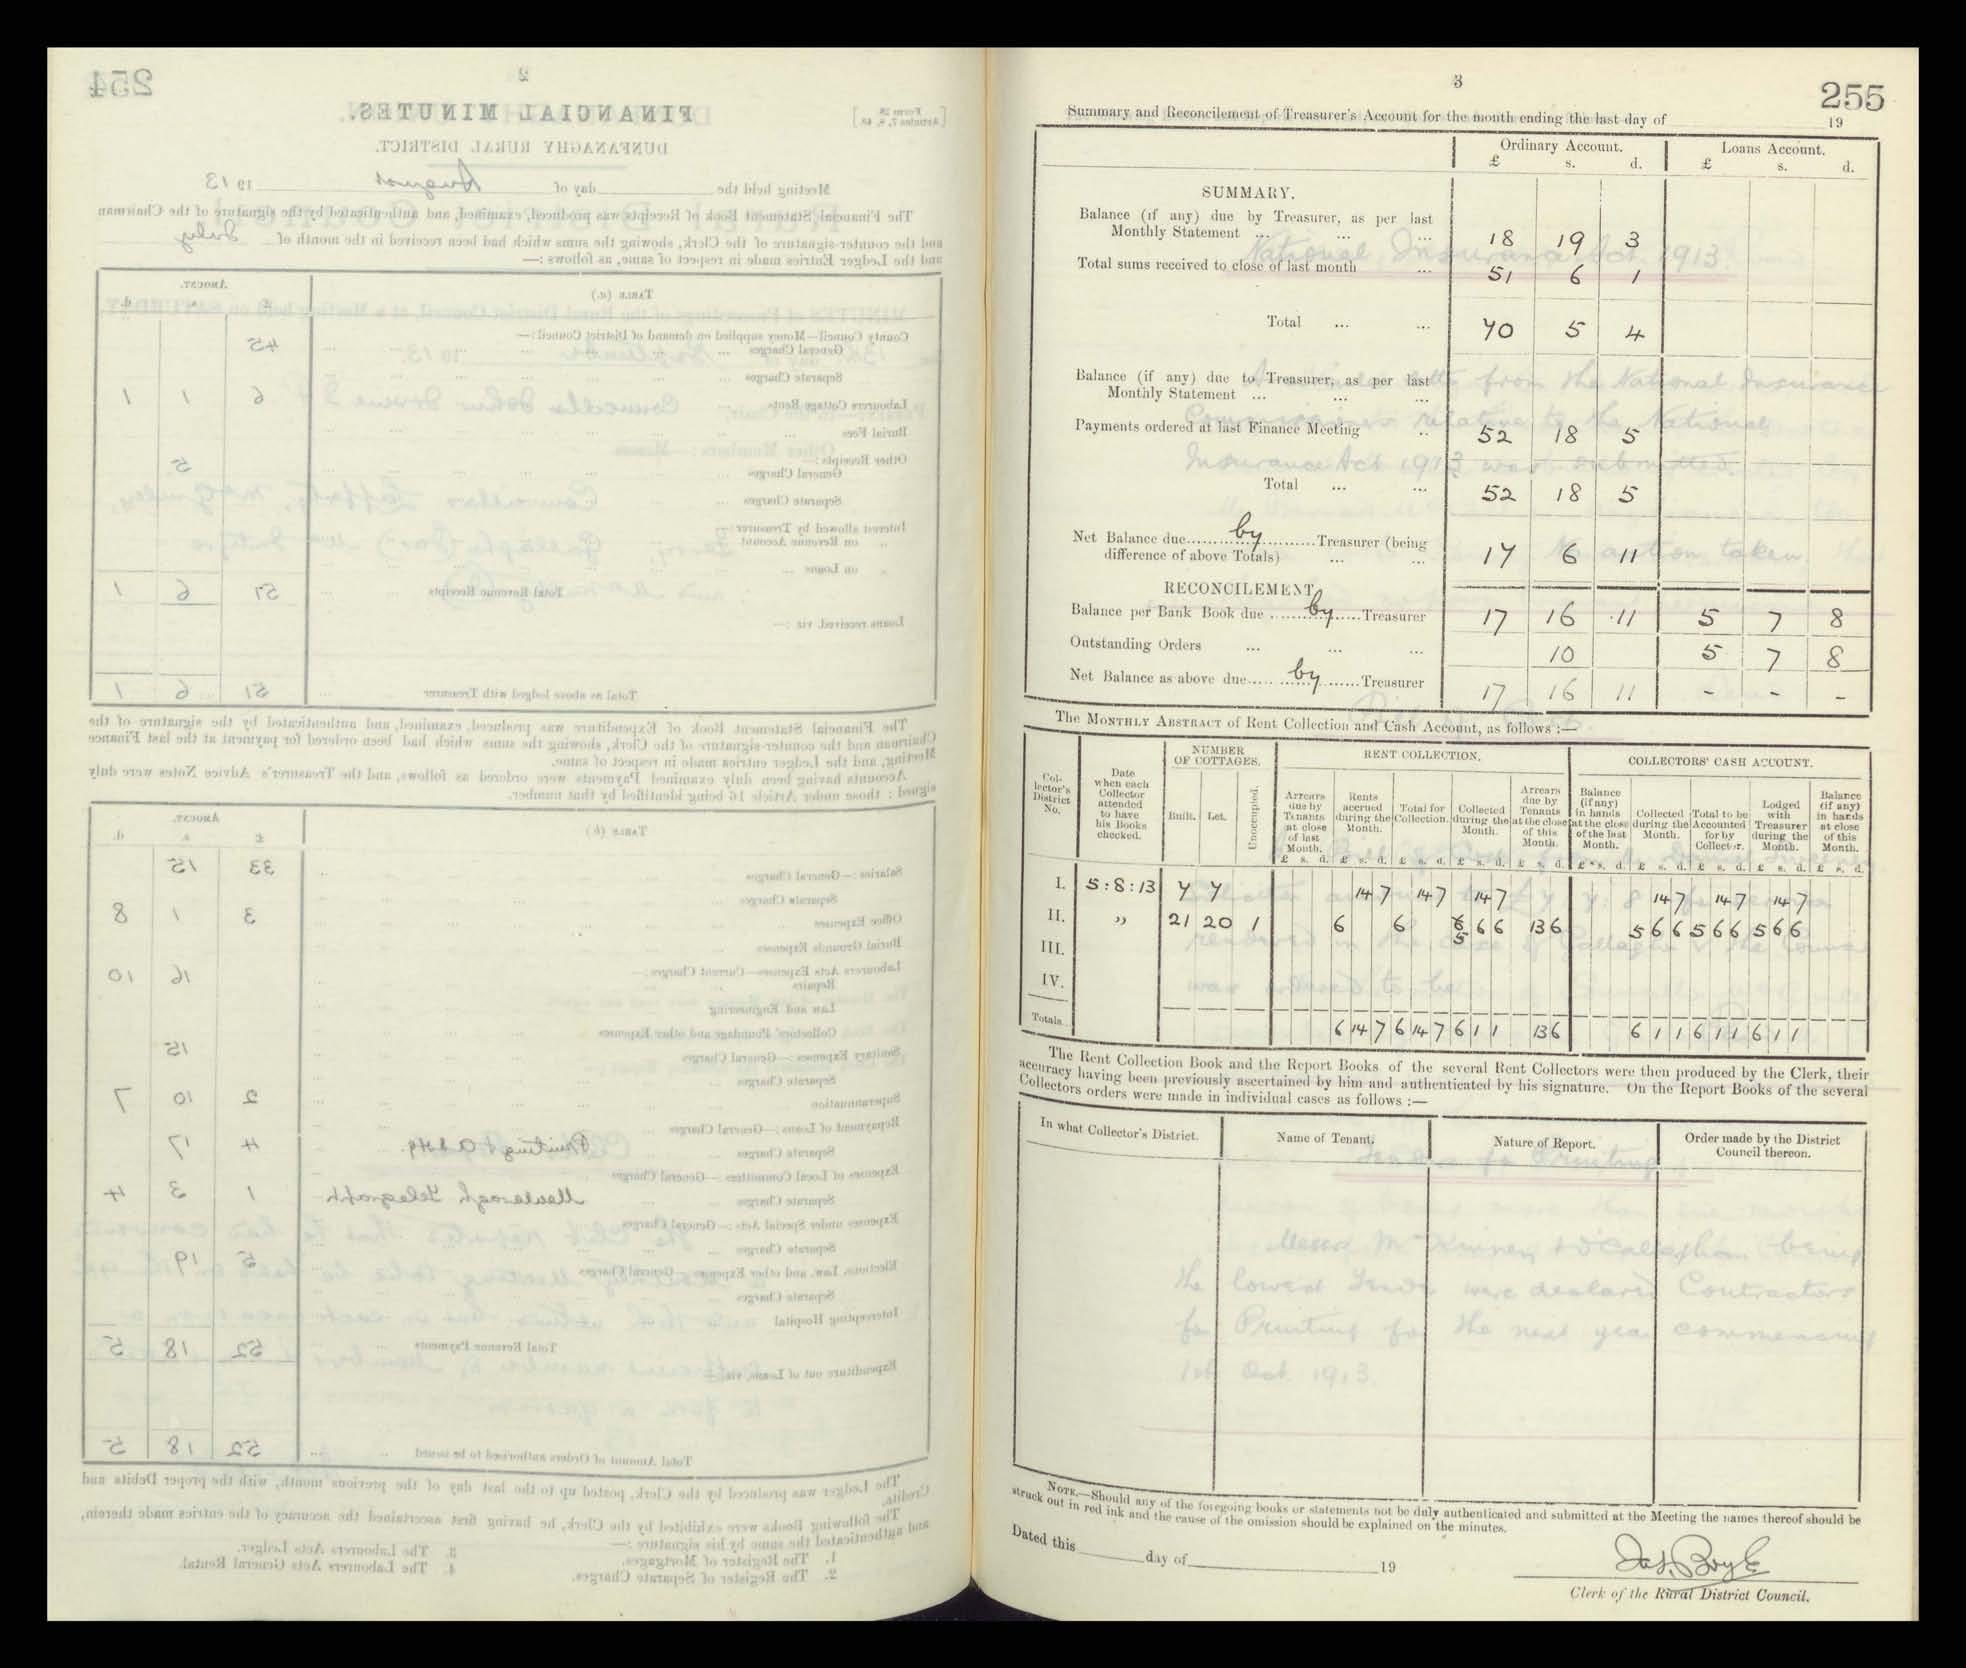 254
2
FINANCIAL MINUTES.
[Form 28 Articles 7, 8, 48]
DUNFANAGHY RURAL DISTRICT.
Meeting held the day of August 1913
The Financial Statement Book of Receipts was produced, examined, and authenticated by the signature of the Chairman
and the counter-signature of the Clerk, showing the sums which had been received in the month of July
and the Ledger Entries made in respect of same, as follows :—
TABLE (a.) AMOUNT.
£ s. d.
County Council—Money supplied on demand of District Council :—
General Charges 45
Separate Charges
Labourers Cottage Rents 6 1 1
Burial Fees
Other Receipts :—
General Charges 5
Separate Charges
Interest allowed by Treasurer :—
on Revenue Account
on Loans
Total Revenue Receipts 51 6 1
Loans received, viz :—
Total as above lodged with Treasurer 51 6 1
The Financial Statement Book of Expenditure was produced, examined, and authenticated by the signature of the
Chairman and the counter-signature of the Clerk, showing the sums which had been ordered for payment at the last Finance
Meeting, and the Ledger entries made in respect of same.
Accounts having been duly examined Payments were ordered as follows, and the Treasurer's Advice Notes were duly
signed : those under Article 16 being identified by that number.
TABLE (b.) AMOUNT.
£ s. d.
Salaries :—General Charges 33 15
Separate Charges
Office Expenses 3 1 8
Burial Grounds Expenses
Labourers Acts Expenses—Current Charges :—
Repairs 16 10
Law and Engineering
Collectors' Poundage and other Expenses
Sanitary Expenses :—General Charges 15
Separate Charges
Superannuation 2 10 7
Repayment of Loans :—General Charges
Separate Charges Printing & Advtg. 4 17
Expenses of Local Committees :—General Charges
Separate Charges Telegraph 1 3 4
Expenses under Special Acts :—General Charges
Separate Charges
Elections, Law, and other Expenses—General Charges 5 19
Separate Charges
Intercepting Hospital
Total Revenue Payments 52 18 5
Expenditure out of Loans, viz :—
Total Amount of Orders authorised to be issued 52 18 5
The Ledger was produced by the Clerk, posted up to the last day of the previous month, with the proper Debits and
Credits.
The following Books were exhibited by the Clerk, he having first ascertained the accuracy of the entries made therein,
and authenticated the same by his signature :—
1. The Register of Mortgages. 3. The Labourers Acts Ledger.
2. The Register of Separate Charges. 4. The Labourers Acts General Rental.
3
255
Summary and Reconcilement of Treasurer's Account for the month ending the last day of 19
Ordinary Account. Loans Account.
£ s. d. £ s. d.
SUMMARY.
Balance (if any) due by Treasurer, as per last
Monthly Statement ... ... ... 18 19 3
Total sums received to close of last month ... 51 6 1
Total ... ... 70 5 4
Balance (if any) due to Treasurer, as per last
Monthly Statement ... ... ...
Payments ordered at last Finance Meeting ... 52 18 5
Total ... ... 52 18 5
Net Balance due by Treasurer (being
difference of above Totals) ... ... 17 6 11
RECONCILEMENT
Balance per Bank Book due by Treasurer 17 16 11 5 7 8
Outstanding Orders ... ... ... 10 5 7 8
Net Balance as above due by Treasurer 17 16 11 - - -
The MONTHLY ABSTRACT of Rent Collection and Cash Account, as follows :—
Collector's District No.
Date when each Collector attended to have his Books checked.
NUMBER OF COTTAGES.
Built. Let. Unoccupied.
RENT COLLECTION.
Arrears due by Tenants at close of last Month.
Rents accrued during the Month.
Total for Collection.
Collected during the Month.
Arrears due by Tenants at the close of this Month.
COLLECTORS' CASH ACCOUNT.
Balance (if any) in hands at the close of the last Month.
Collected during the Month.
Total to be Accounted for by Collector.
Lodged with Treasurer during the Month.
Balance (if any) in hands at close of this Month.
£ s. d. £ s. d. £ s. d. £ s. d. £ s. d. £ s. d. £ s. d. £ s. d. £ s. d. £ s. d.
I. 5:8:13 7 7 14 7 14 7 14 7 14 7 14 7 14 7
II. " 21 20 1 6 6 5 6 6 13 6 5 6 6 5 6 6 5 6 6
III.
IV.
Totals 6 14 7 6 14 7 6 1 1 13 6 6 1 1 6 1 1 6 1 1
The Rent Collection Book and the Report Books of the several Rent Collectors were then produced by the Clerk, their
accuracy having been previously ascertained by him and authenticated by his signature. On the Report Books of the several
Collectors orders were made in individual cases as follows :—
In what Collector's District. Name of Tenant. Nature of Report. Order made by the District Council thereon.
NOTE.—Should any of the foregoing books or statements not be duly authenticated and submitted at the Meeting the names thereof should be
struck out in red ink and the cause of the omission should be explained on the minutes.
Dated this day of 19
Jas. Boyle
Clerk of the Rural District Council.